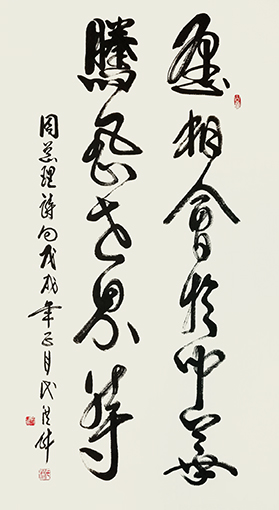 愿相會於中華
騰飛世界時
周總理詩句戊戌年正月